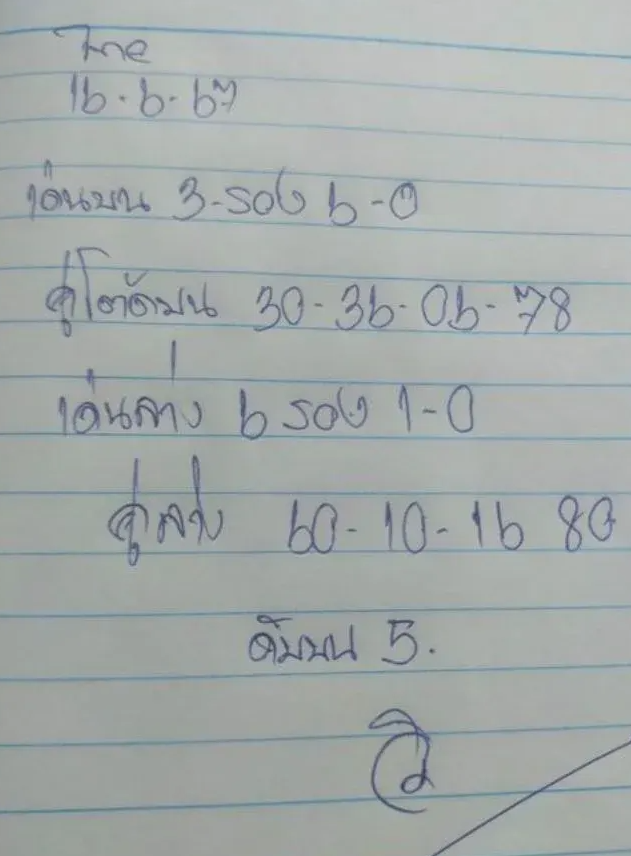 ไทย
16.6.67
เด่นบน 3-รอง 6-0
คู่โต๊ดบน 30-36-06-78
เด่นล่าง 6 รอง 1-0
คู่ล่าง 60-10-16 80
ดับบน 5.